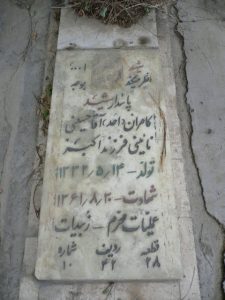 پاسدار شهید
کامران (احد) آقا حسینی
نائینی فرزند اکبر
تولد - ۱۳۴۲/۵/۱۴
شهادت - ۱۳۶۱/۸/۲۰
عملیات محرم - زبیدات
قطعه ردیف شماره
۲۸ ۴۲ ۱۰